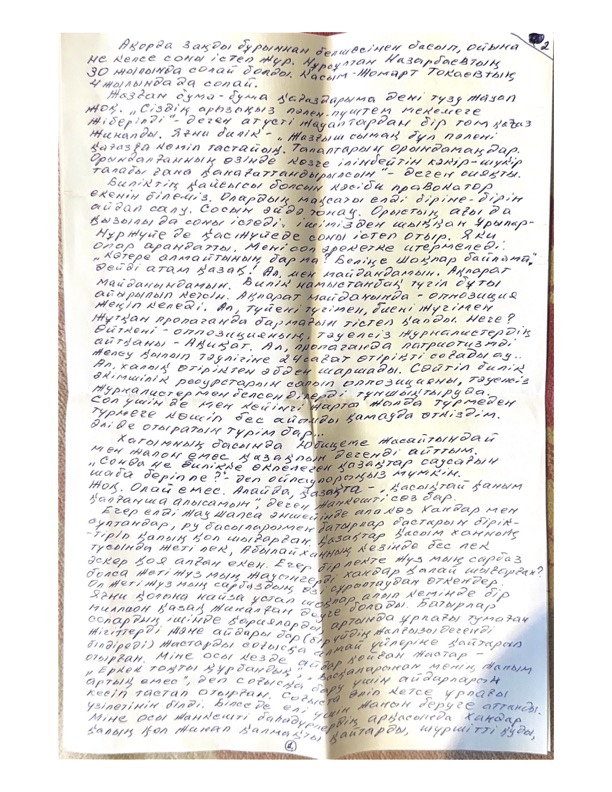 2
Ақорда заңды бұрыннан белшесінен басып, ойына
не келсе соны істеп жүр. Нұрсұлтан Назарбаевтың
30 жылында солай болды. Қасым-Жомарт Тоқаевтың
4 жылында да солай.
Жазған бума-бума қағаздарыма дені түзу жауап
жоқ. „Сіздің арызыңыз пәлен-пүштем мекемеге
жіберілді"- деген атүсті жауаптардан бір том қағаз
жиналды. Яғни билік - „Жазғыш сымақ бұл пәлені
қағазға көміп тастайық. Талаптарын орындамаңдар.
Орындалғанның өзінде көзге ілінбейтін кәкір-шүкір
талабы ғана қанағаттандырылсын"- деген сияқты.
Биліктің қайсысы болсын кәсіби провокатор
екенін білеміз. Олардың мақсаты елді біріне-бірін
айдап салу. Сосын әйдә тонау. Орыстың ағы да
қызылы да соны істеді. Ішімізден шыққан ұрылар-
Нұржүйе де қас жүйеде соны істеп отыр. Яки
олар арандатты. Мені сол әрекетке итермеледі.
„Көтере алмайтының барма? Беліңе шоқпар байлама",
дейді атам қазақ. Ал, мен майдандамын. Ақпарат
майданындамын. Билік намыстанбақ түгіл бұты
айырылып кетсін. Ақпарат майданында - оппозиция
жеңіп келеді. Ал, түйені түгімен, биені жүгімен
жұтқан пропаганда бармағын тістеп қалды. Неге?
Өйткені - оппозицияның, тәуелсіз журналистердің
айтқаны - Ақиқат. Ал, пропаганда патриотизмді
желеу қылып тәулігіне 24 сағат өтірікті соғады ау..
Ал, халық өтіріктен әбден шаршады. Сөйтіп билік
әкімшілік ресурстарын салып оппозицияны, тәуелсіз
журналистермен белсенділерді тұншықтыруда.
Сол үшін де мен кейінгі жарты жылда түрмеден
түрмеге көшіп бес айымды қамауда өткіздім.
Әлі де отыратын түрім бар...
Хатымның басында юбицеме жасайтындай
мен жалған емес қазақпын дегенді айттым.
„Сонда не билікке өкпелеген қазақтар соусағын
шаба беріппе?"- деп ойлаулорыңыз мүмкін.
Жоқ. Олай емес. Алайда, қазақта - „қасықтай қаным
қалғанша алысамын", деген жанкешті сөз бар.
Егер елді жау жапса әншейінде ала көз хандар мен
сұлтандар, ру басыларымен батырлар бастарын бірік-
тіріп қалың қол шығарған. Қазақтар Қасым ханның
тұсында жеті лек, Абылай ханның кезінде бес лек
әскер қоя алған екен. Егер бір лекте жүз мың сарбаз
болса жеті жүз мың жауынгерді хандар қалай шығарған?
Ол жеті жүз мың сарбаздың өзі сұрыптаудан өткендер.
Яғни қолына найза ұстап шоқпар алып кемінде бір
миллион қазақ жиналған дәуге болады. Батырлар
солардың ішінде қарияларды, артында ұрпағы тумаған
жігіттерді және айдары бар (бір үйдің жалғызы дегенді
білдіреді) жастарды соғысқа алмай үйлеріне қайтарып
отырған. Міне осы кезде айдар қойған жастар -
„Еркек тоқты құрбандық". Басқалардан менің жаным
артық емес", деп соғысқа бару үшін айдарларын
кесіп тастап отырған. Соғыста өліп кетсе ұрпағы
үзілетінін білді. Білседе елі үшін жанын беруге аттанды.
Міне осы жанкешті баһадүрлердің арқасында хандар
қалың қол жинап қалмақты қайтарды, шүршітті қуды,
2